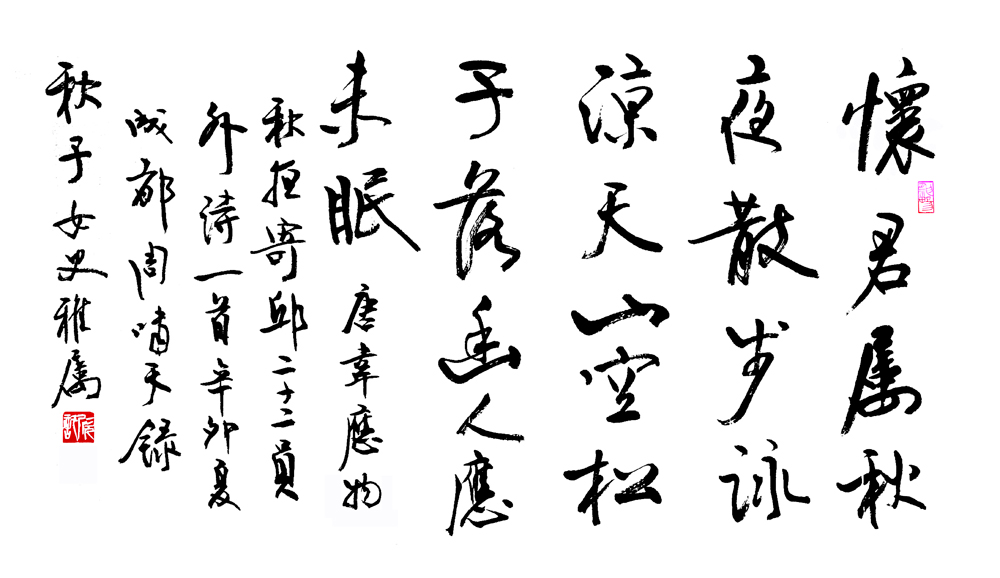 懷君属秋
夜散步詠
涼天山空松
子落幽人應
未眠 唐韋應物
秋夜寄邱二十二員
外詩一首辛卯夏
成都周嘯天録
秋子女史雅属